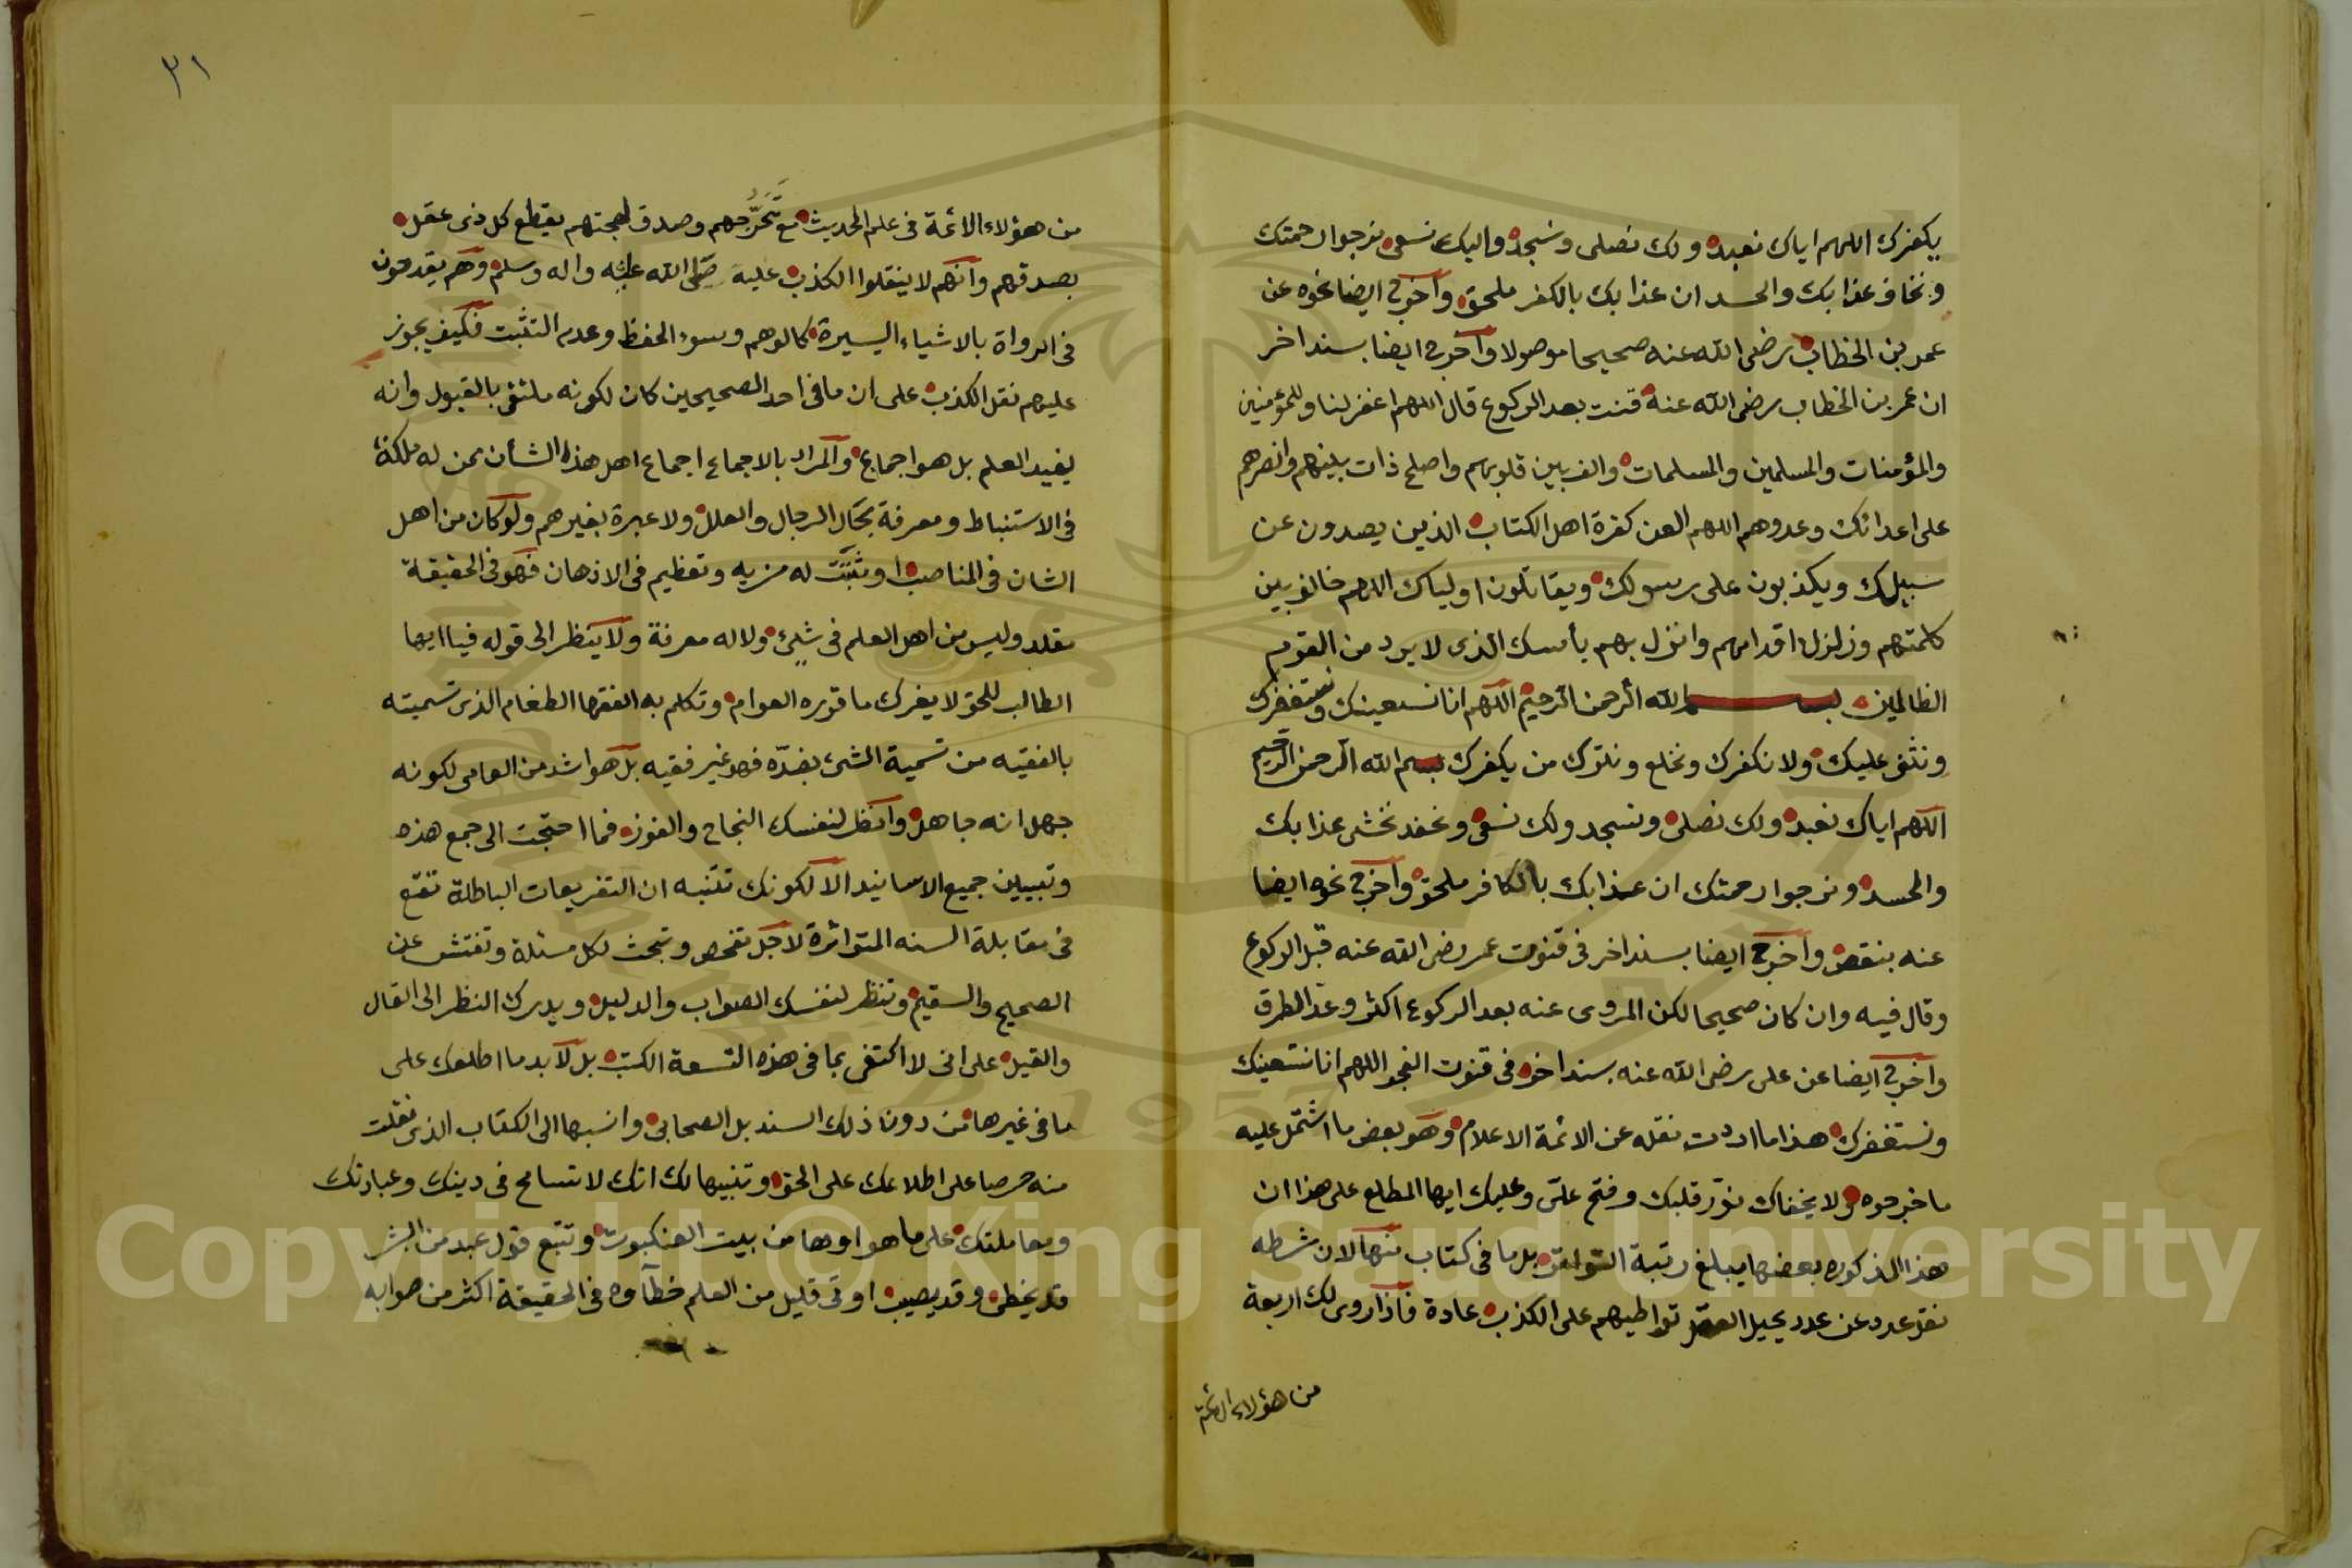 يكفرك اللهم اياك نعبد ولك نصلى ونسجد واليك نسعى نرجوا رحمتك
ونخاف عذابك والجد ان عذابك بالكفر ملحق واخرج ايضا نحوه عن
عمر بن الخطاب رضى الله عنه صحيحا موصولا واخرج ايضا بسند اخر
ان عمر بن الخطاب رضى الله عنه قنت بعد الركوع قال اللهم اغفر لنا وللمؤمنين
والمؤمنات والمسلمين والمسلمات والف بين قلوبهم واصلح ذات بينهم وانصرهم
على اعدائك وعدوهم اللهم العن كفرة اهل الكتاب الذين يصدون عن
سبيلك ويكذبون على رسولك ويقاتلون اولياك اللهم خالف بين
كلمتهم وزلزل اقدامهم وانزل بهم بأسك الذى لا يرد من القوم
الظالمين بسم الله الرحمن الرحيم اللهم انا نستعينك ونستغفرك
ونثنى عليك ولا نكفرك ونخلع ونترك من يكفرك بسم الله الرحمن الرحيم
اللهم اياك نعبد ولك نصلى ونسجد ولك نسعى ونحفد نخشى عذابك
والجد ونرجوا رحمتك ان عذابك بالكافر ملحق واخرج نحوه ايضا
عنه بنقص واخرج ايضا بسند اخر فى قنوت عمر رضى الله عنه قبل الركوع
وقال فيه وان كان صحيحا لكن المروى عنه بعد الركوع اكثر وعد الطرق
واخرج ايضا عن على رضى الله عنه بسند اخر فى قنوت الفجر اللهم انا نستعينك
ونستغفرك هذا ما اردت نقله عن الائمة الاعلام وهو بعض ما اشتمل عليه
ما خرجوه ولا يخفاك نور قلبك وفتح على وعليك ايها المطلع على هذا ان
هذا المذكور بعضها يبلغ رتبة التواتر بل ما فى كتاب منها لان شرطه
نقل عدد عن عدد يحيل العقل تواطيهم على الكذب عادة فاذا روى لك اربعة
من هؤلاء الائمة
٣١
من هؤلاء الائمة فى علم الحديث مع تحرجهم وصدق لهجتهم يقطع كل ذى عقل
بصدقهم وانهم لا ينقلوا الكذب عليه صلى الله عليه واله وسلم وهم يقدحون
فى الرواة بالاشياء اليسيرة كالوهم وسوء الحفظ وعدم التثبت فكيف يجوز
عليهم نقل الكذب على ان ما فى احد الصحيحين كان لكونه ملتقى بالقبول وانه
يفيد العلم بل هو اجماع والمراد بالاجماع اجماع اهل هذا الشأن ممن له ملكة
فى الاستنباط ومعرفة بحال الرجال والعلل ولا عبرة بغيرهم ولو كان من اهل
الشان فى المناصب او ثبتت له مزيه وتعظيم فى الاذهان فهو فى الحقيقة
مقلد وليس من اهل العلم فى شئ ولا له معرفة ولا ينظر الى قوله فيا ايها
الطالب للحق لا يغرك ما قوره العوام وتكلم به الفقها الطغام الذى تسميته
بالفقيه من تسمية الشئ بضده فهو غير فقيه بل هو اشد من العامى لكونه
جهل انه جاهل وانظر لنفسك النجاح والفوز فما احتجت الى جمع هذه
وتبيين جميع الاسانيد الا لكونك تنتبه ان التفريعات الباطلة تقع
فى مقابلة السنه المتواترة لاجل تفحص وتبحث لكل مسئلة وتفتش عن
الصحيح والسقيم وتنظر لنفسك الصواب والدليل ويدرك النظر الى القال
والقيل على انى لا اكتفى بما فى هذه التسعة الكتب بل لا بد ما اطلعك على
ما فى غيرها من دون ذلك السند بل الصحابى وانسبها الى الكتاب الذى نقلت
منه حرصا على اطلاعك على الحق وتنبيها لك انك لا تسامح فى دينك وعبادتك
ومعاملتك على ما هو اوها من بيت العنكبوت وتتبع قول عبد من البشر
قد يخطى وقد يصيب اوتى قليل من العلم خطآوه فى الحقيقة اكثر من صوابه
Copyright © King Saud University
1957